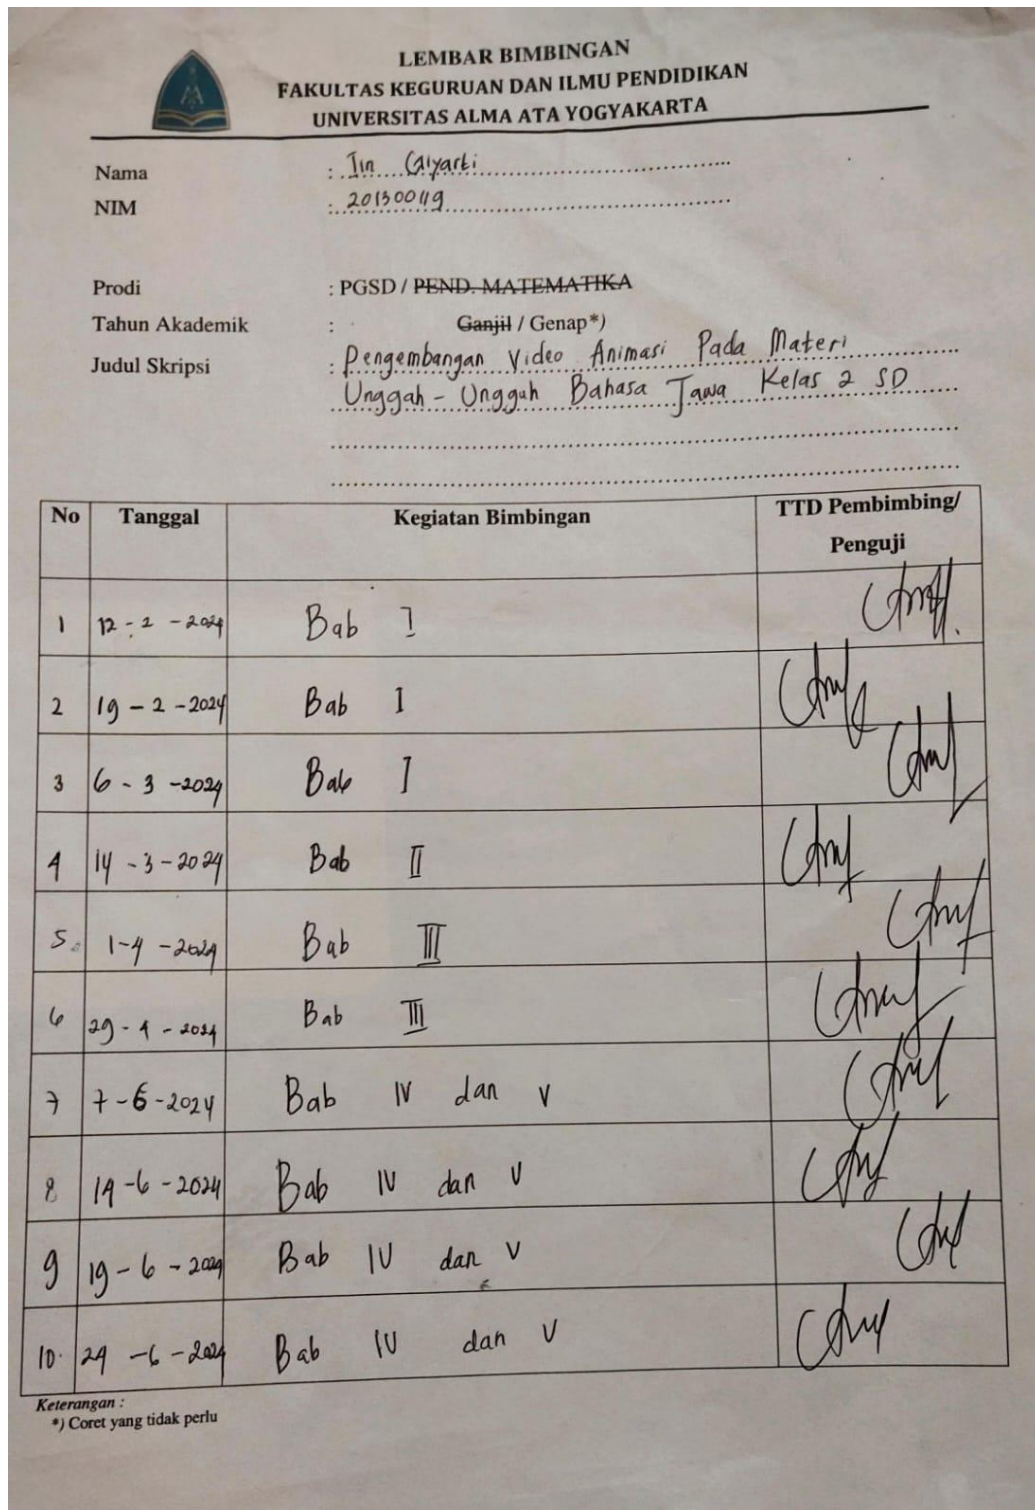 LEMBAR BIMBINGAN
FAKULTAS KEGURUAN DAN ILMU PENDIDIKAN
UNIVERSITAS ALMA ATA YOGYAKARTA
Nama : Iin
NIM : 201300119
Prodi : PGSD / PEND. MATEMATIKA
Tahun Akademik : Ganjil / Genap*)
Judul Skripsi : Pengembangan Video Animasi Pada Materi
Unggah - Ungguh Bahasa Jawa Kelas 2 SD
No Tanggal Kegiatan Bimbingan TTD Pembimbing/
Penguji
1 12 - 2 - 2024 Bab I
2 19 - 2 - 2024 Bab I
3 6 - 3 - 2024 Bab I
4 14 - 3 - 2024 Bab II
5. 1 - 4 - 2024 Bab III
6 29 - 4 - 2024 Bab III
7 7 - 6 - 2024 Bab IV dan V
8 14 - 6 - 2024 Bab IV dan V
9 19 - 6 - 2024 Bab IV dan V
10. 24 - 6 - 2024 Bab IV dan V
Keterangan :
*) Coret yang tidak perlu